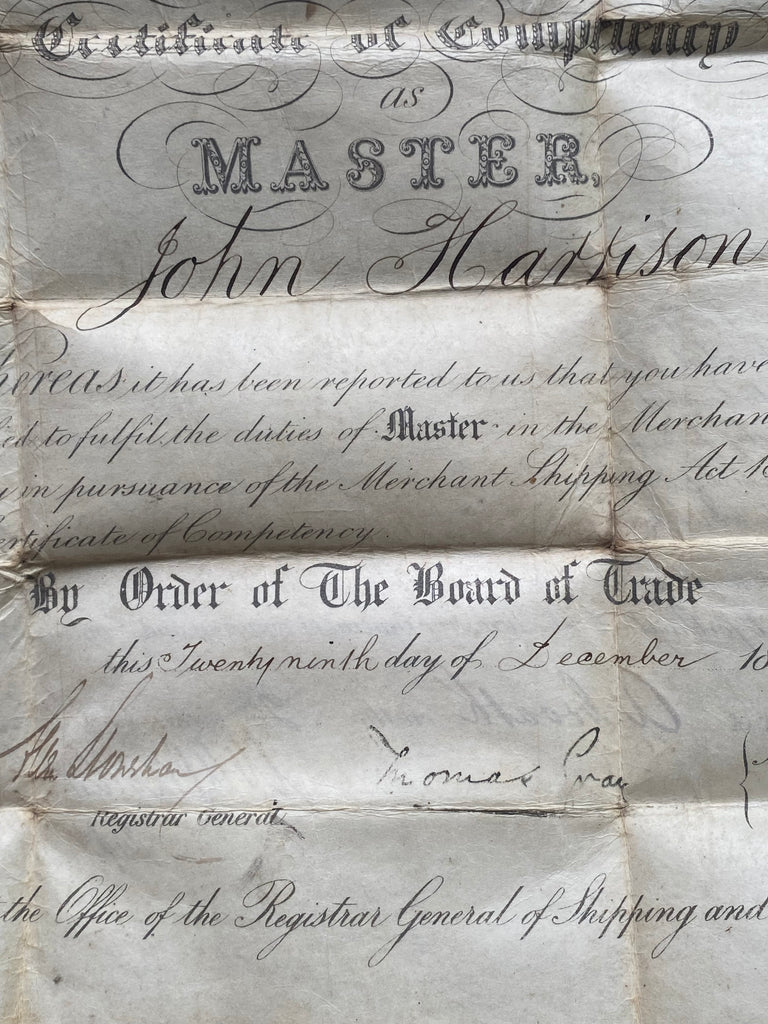 Certificate of Competency
as
MASTER,
John Harrison
hereas it has been reported to us that you have
ied to fulfil the duties of Master in the Merchan
y in pursuance of the Merchant Shipping Act 18
ertificate of Competency.
By Order of The Board of Trade
this Twenty ninth day of December 18
Thomas
Registrar General.
the Office of the Registrar General of Shipping and